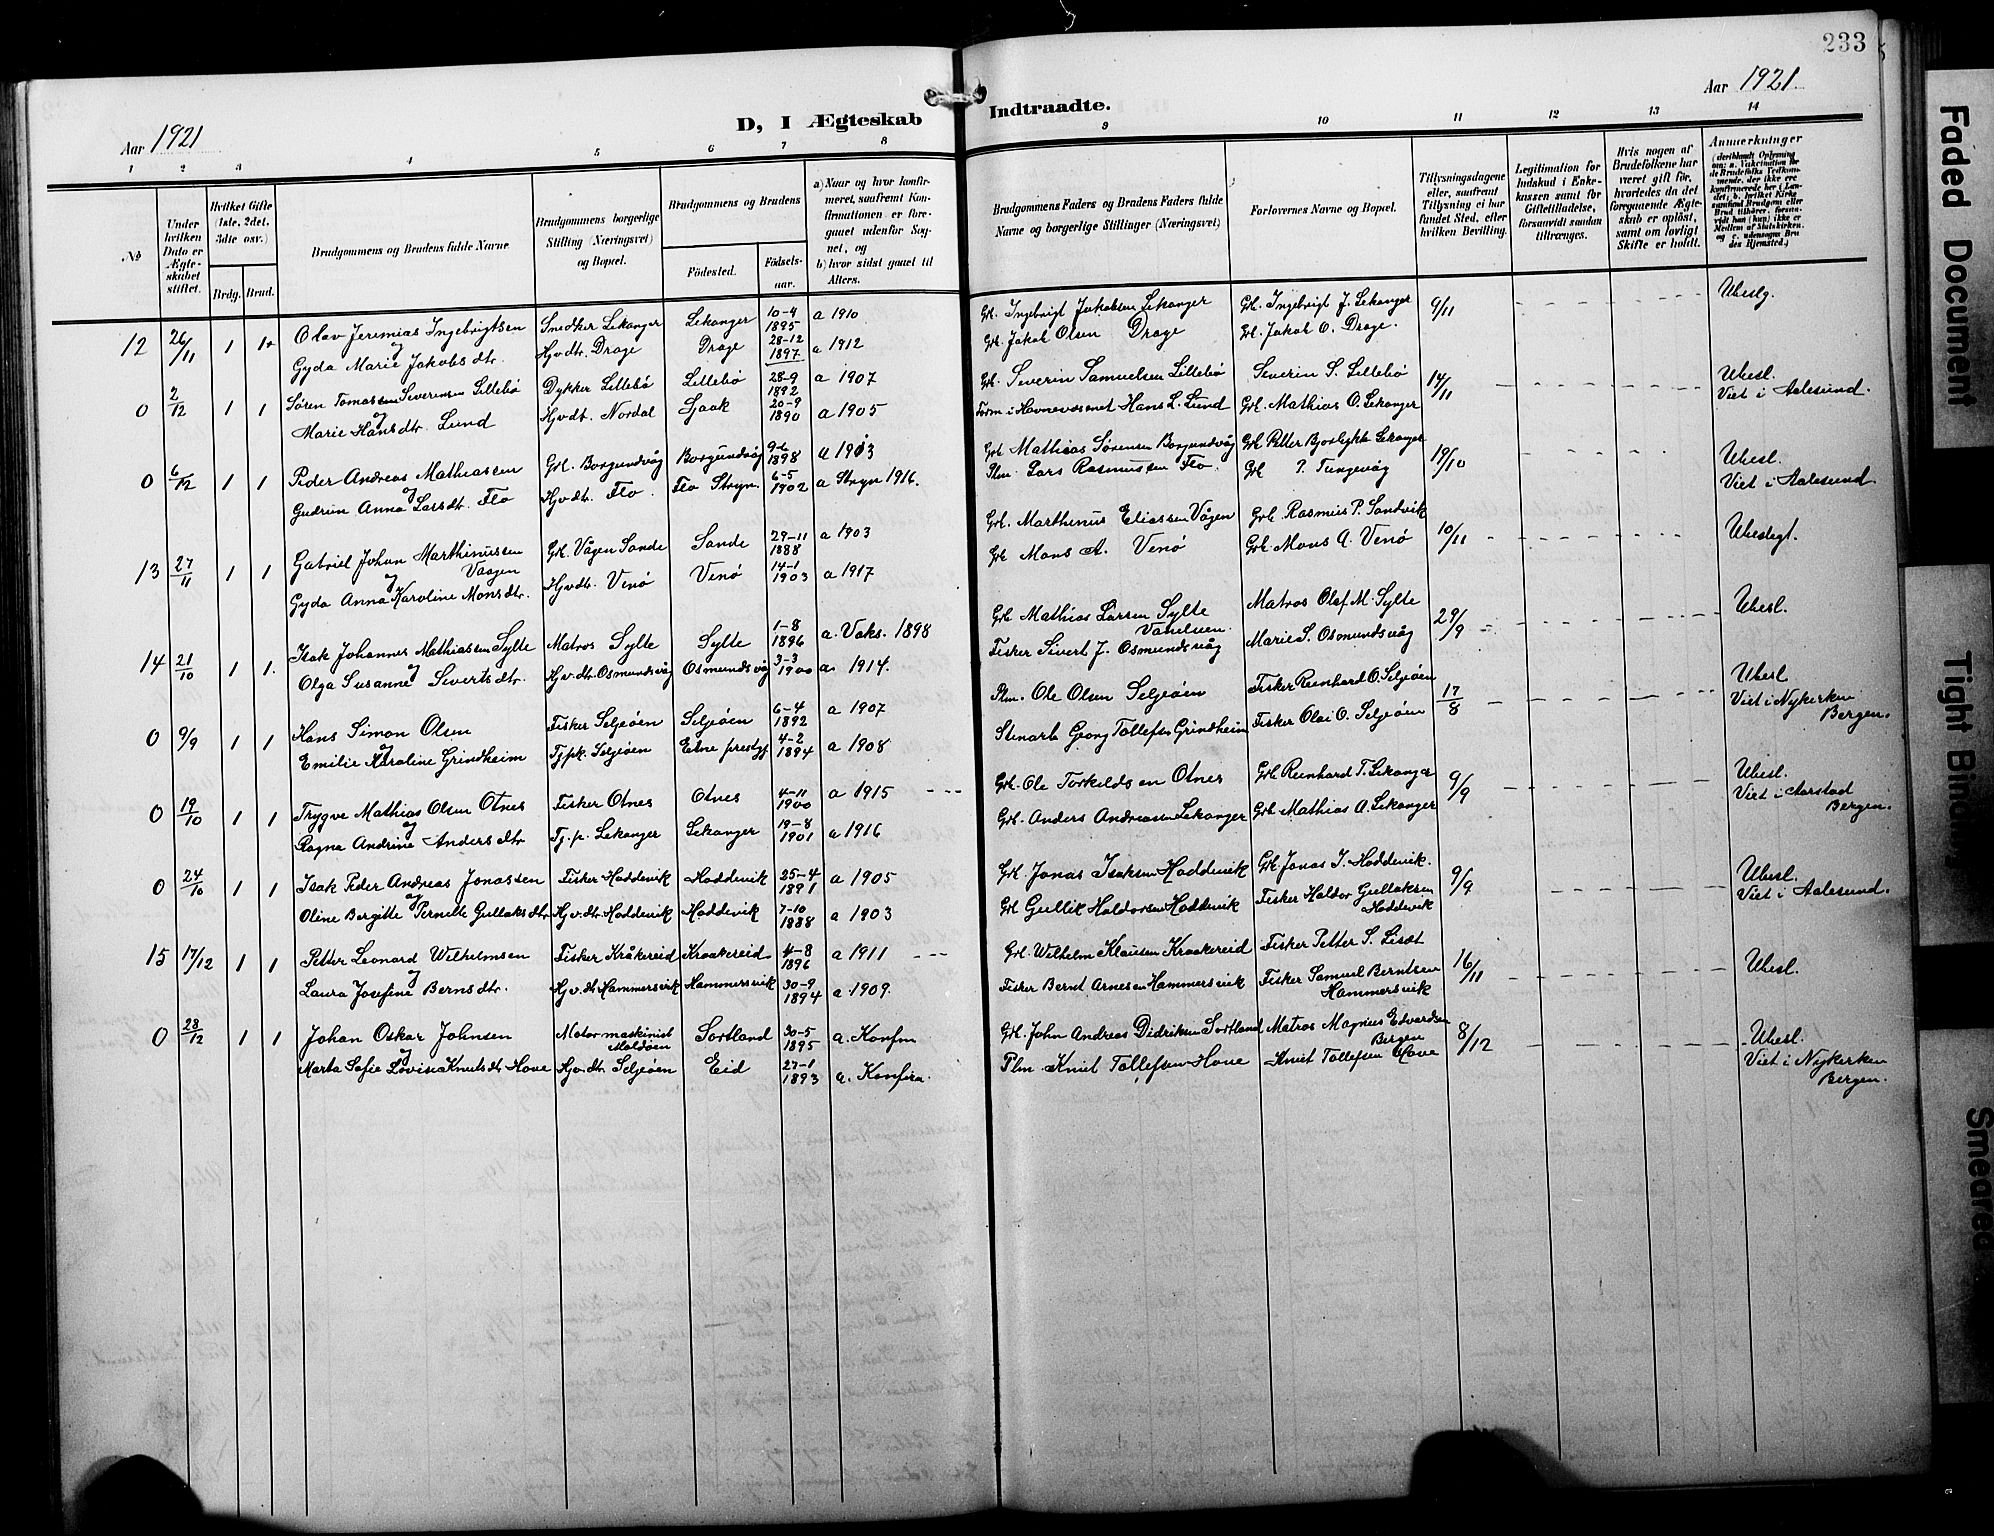 233
Aar 1921
D, I Ægteskab
Indtraadte.
Aar 1921
1 2 3 4 5 6 7 8
9 10 11 12 13 14
No
Under hvilken Dato er Ægteskabet stiftet.
Hvilket Gifte (1ste, 2det, 3dte osv.)
Brdg. Brud.
Brudgommens og Brudens fulde Navne
Brudgommens borgerlige Stilling (Næringsvei) og Bopæl.
Brudgommens og Brudens
Födested.
Födselsaar.
a) Naar og hvor konfirmeret, saafremt Konfirmationen er foregaaet udenfor Sognet, og
b) hvor sidst gaaet til Alters.
Brudgommens Faders og Brudens Faders fulde Navne og borgerlige Stillinger (Næringsvei)
Forlovernes Navne og Bopæl.
Tillysningsdagene eller, saafremt Tillysning ei har fundet Sted, efter hvilken Bevilling.
Legitimation for Indskud i Enkekassen samt for Giftetilladelse, forsaavidt saadan tiltrænges.
Hvis nogen af Brudefolkene har været gift før, hvorledes da det foregaaende Ægteskab er opløst, samt om lovligt Skifte er holdt.
Anmærkninger
12 26/11 1 1 Olav Jeremias Ingebrigtsen Snedker Lekanger Lekanger 10-4 1895 a 1910 Grl. Ingebrigt Jakobsen Lekanger Grl. Ingebrigt J. Lekanger 9/11 Ubeslg.
og
Gyda Marie Jakobsdtr. Hjvdtr. Drage Drage 28-12 1897 a 1912 Grl. Jakob Olsen Drage Grl. Jakob O. Drage.
0 2/12 1 1 Søren Tomassen Severinsen Lillebö Dykker Lillebö Lillebö 28-9 1892 a 1907 Grl. Severin Samuelsen Lillebö Severin S. Lillebö 14/11 Ubesl.
og
Marie Hansdtr. Lund Hjvdt. Nordal 20-9 1890 a 1905 Form. i Havnevæsenet Hans L. Lund Grl. Mathias O. Lekanger Viet i Aalesund.
0 6/12 1 1 Peder Andreas Mathiassen Grl. Borgundvåg Borgundvåg 9-6 1898 a 1913 Grl. Mathias Sørensen Borgundvåg Grl. Petter Bjørlykke Lekanger 19/10 Ubesl.
og
Gudrun Anna Larsdt. Flo Hjvdtr. Flo. Flo Stryn. 6-5 1902 a Stryn 1916. Plm. Lars Rasmussen Flo. Grl. P. Tungevåg Viet i Aalesund.
13 27/11 1 1 Gabriel Johan Marthinussen Vaagen Grl. Vågen Sande Sande 29-11 1888 a 1903 Grl. Marthinus Eliassen Vågen Grl. Rasmus P. Sandvik 10/11 Ubeslegt.
og
Gyda Anna Karoline Monsdtr. Hjvdtr. Venö Venö 14-1 1903 a 1917 Grl. Mons A. Venö Grl. Mons A. Venö
14 21/10 1 1. Isak Johannes Mathiassen Sylte Matros Sylte Sylte 1-8 1896 a. Vaks. 1898 Grl. Mathias Larsen Sylte Matros Olaf M. Sylte 29/9 Ubesl.
og
Olga Susanne Sivertsdtr. Hjvdtr. Osmundsvåg Osmundsvåg 3-3 1900 a. 1914. Fisker Sivert J. Osmundsvåg Marie S. Osmundsvåg
0 9/9 1 1 Hans Simon Olsen Fisker Seljeöen Seljeöen 6-4 1892 a 1907 Plm. Ole Olsen Seljeöen Fisker Reinhard O. Seljeöen 17/8 Ubesl
og
Emilie Karoline Grindheim Tjpk. Seljeöen Etne prestgj 4-2 1894 a 1908 Stenarb. Georg Tollefsen Grindheim Fisker Olai O. Seljeöen Viet i Nykerken Bergen.
0 19/10 1 1 Trygve Mathias Olsen Otnes Fisker Otnes Otnes 4-11 1900 a 1915 Grl. Ole Torkildsen Otnes Grl. Reinhard T. Lekanger 9/9 Ubesl.
og
Ragna Andrine Andersdtr Tj. p. Lekanger Lekanger 19-8 1901 a 1916 Grl. Anders Andreassen Lekanger Grl. Mathias A. Lekanger Viet i Aarstad Bergen.
0 24/10 1 1 Isak Peder Andreas Jonassen Fisker Hoddevik Hoddevik 25-4 1891 a 1905 Grl. Jonas Isaksen Hoddevik Grl. Jonas I. Hoddevik. 9/9 Ubesl.
og
Oline Bergitte Pernelle Gullaksdtr Hjvdtr. Hoddevik Hoddevik 7-10 1888 a 1903 Grl. Gullik Haldorsen Hoddevik Fisker Haldor Gullaksen Hoddevik Viet i Aalesund.
15 17/12 1 1 Petter Leonard Wilhelmsen Fisker Kråkereid Kraakereid. 4-8 1896 a 1911 Grl. Wilhelm Klausen Kraakereid Fisker Petter S. Liset 16/11 Ubesl.
og
Laura Josefine Berns dtr. Hjv. dtr. Hammersvik Hammersvik 30-9 1894 a. 1909. Fisker Bernt Arnesen Hammersvik Fisker Samuel Berntsen Hammersvik
0 28/12 1 1 Johan Oskar Johnsen Motormaskinist Moldöen Sortland 30-5 1895 a. Konfm Grl. John Andreas Didriksen Sortland Matros Magnus Edvardsen Bergen 8/12 Ubesl.
og
Marta Sofie Lovise Knutsdtr Hove Hjvdtr. Seljeöen Eid 27-1 1893 a. Konfira. Plm. Knut Tollefsen Hove Knut Tollefsen Hove Viet i Nykerken Bergen.
Faded Document
Tight Binding
Smeared